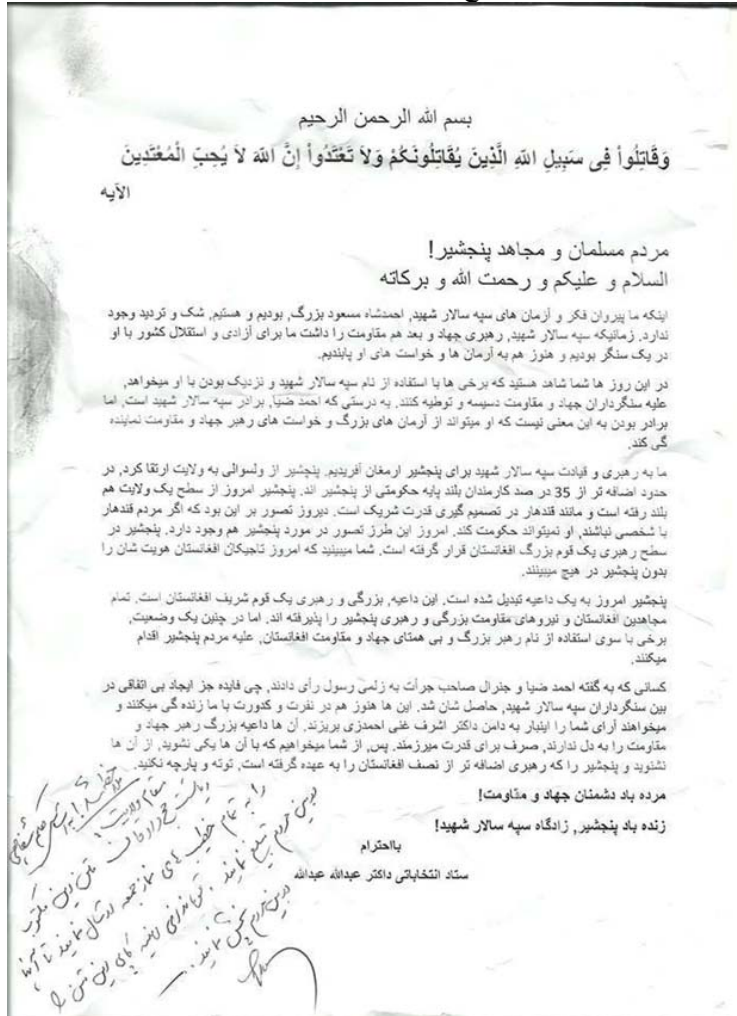 بسم الله الرحمن الرحيم
وَقَاتِلُواْ فِي سَبِيلِ اللّهِ الَّذِينَ يُقَاتِلُونَكُمْ وَلاَ تَعْتَدُواْ إِنَّ اللّهَ لاَ يُحِبِّ الْمُعْتَدِينَ
الآيه
مردم مسلمان و مجاهد پنجشیر!
السلام و علیکم و رحمت الله و برکاته
اینکه ما پیروان فکر و آزمان های سپه سالار شهید, احمدشاه مسعود بزرگ, بودیم و هستیم, شک و تردید وجود
ندارد. زمانیکه سپه سالار شهید, رهبری جهاد و بعد هم مقاومت را داشت ما برای آزادی و استقلال کشور با او
در یک سنگر بودیم و هنوز هم به آرمان ها و خواست های او پابندیم.
در این روز ها شما شاهد هستید که برخی ها با استفاده از نام سپه سالار شهید و نزدیک بودن با او میخواهد,
علیه سنگرداران جهاد و مقاومت دسیسه و توطیه کنند. به درستی که احمد ضیا, برادر سپه سالار شهید است, اما
برادر بودن به این معنی نیست که او میتواند از آرمان های بزرگ و خواست های رهبر جهاد و مقاومت نماینده
گی کند.
ما به رهبری و قیادت سپه سالار شهید برای پنجشیر ارمغان آفریدیم. پنجشیر از ولسوالی به ولایت ارتقا کرد, در
حدود اضافه تر از 35 در صد کارمندان بلند پایه حکومتی از پنجشیر اند. پنجشیر امروز از سطح یک ولایت هم
بلند رفته است و مانند قندهار در تصمیم گیری قدرت شریک است. دیروز تصور بر این بود که اگر مردم قندهار
با شخصی نباشند, او نمیتواند حکومت کند. امروز این طرز تصور در مورد پنجشیر هم وجود دارد. پنجشیر در
سطح رهبری یک قوم بزرگ افغانستان قرار گرفته است. شما میبینید که امروز تاجیکان افغانستان هویت شان را
بدون پنجشیر در هیچ میبینند.
پنجشیر امروز به یک داعیه تبدیل شده است. این داعیه, بزرگی و رهبری یک قوم شریف افغانستان است. تمام
مجاهدین افغانستان و نیروهای مقاومت بزرگی و رهبری پنجشیر را پذیرفته اند. اما در چنین یک وضعیت,
برخی با سوی استفاده از نام رهبر بزرگ و بی همتای جهاد و مقاومت افغانستان, علیه مردم پنجشیر اقدام
میکنند.
کسانی که به گفته احمد ضیا و جنرال صاحب جرأت به زلمی رسول رأی دادند, چی فایده جز ایجاد بی اتفاقی در
بین سنگرداران سپه سالار شهید, حاصل شان شد. این ها هنوز هم در نفرت و کدورت با ما زنده گی میکنند و
میخواهند آرای شما را اینبار به دامن داکتر اشرف غنی احمدزی بریزند. آن ها داعیه بزرگ رهبر جهاد و
مقاومت را به دل ندارند, صرف برای قدرت میرزمند. پس, از شما میخواهیم که با آن ها یکی نشوید, از آن ها
نشنوید و پنجشیر را که رهبری اضافه تر از نصف افغانستان را به عهده گرفته است, توته و پارچه نکنید.
مرده باد دشمنان جهاد و مقاومت!
زنده باد پنجشیر, زادگاه سپه سالار شهید!
بااحترام
ستاد انتخاباتی داکتر عبدالله عبدالله
مقام ولایت
را به تمام خطیب های نماز جمعه ارسال نمایند تا آنها